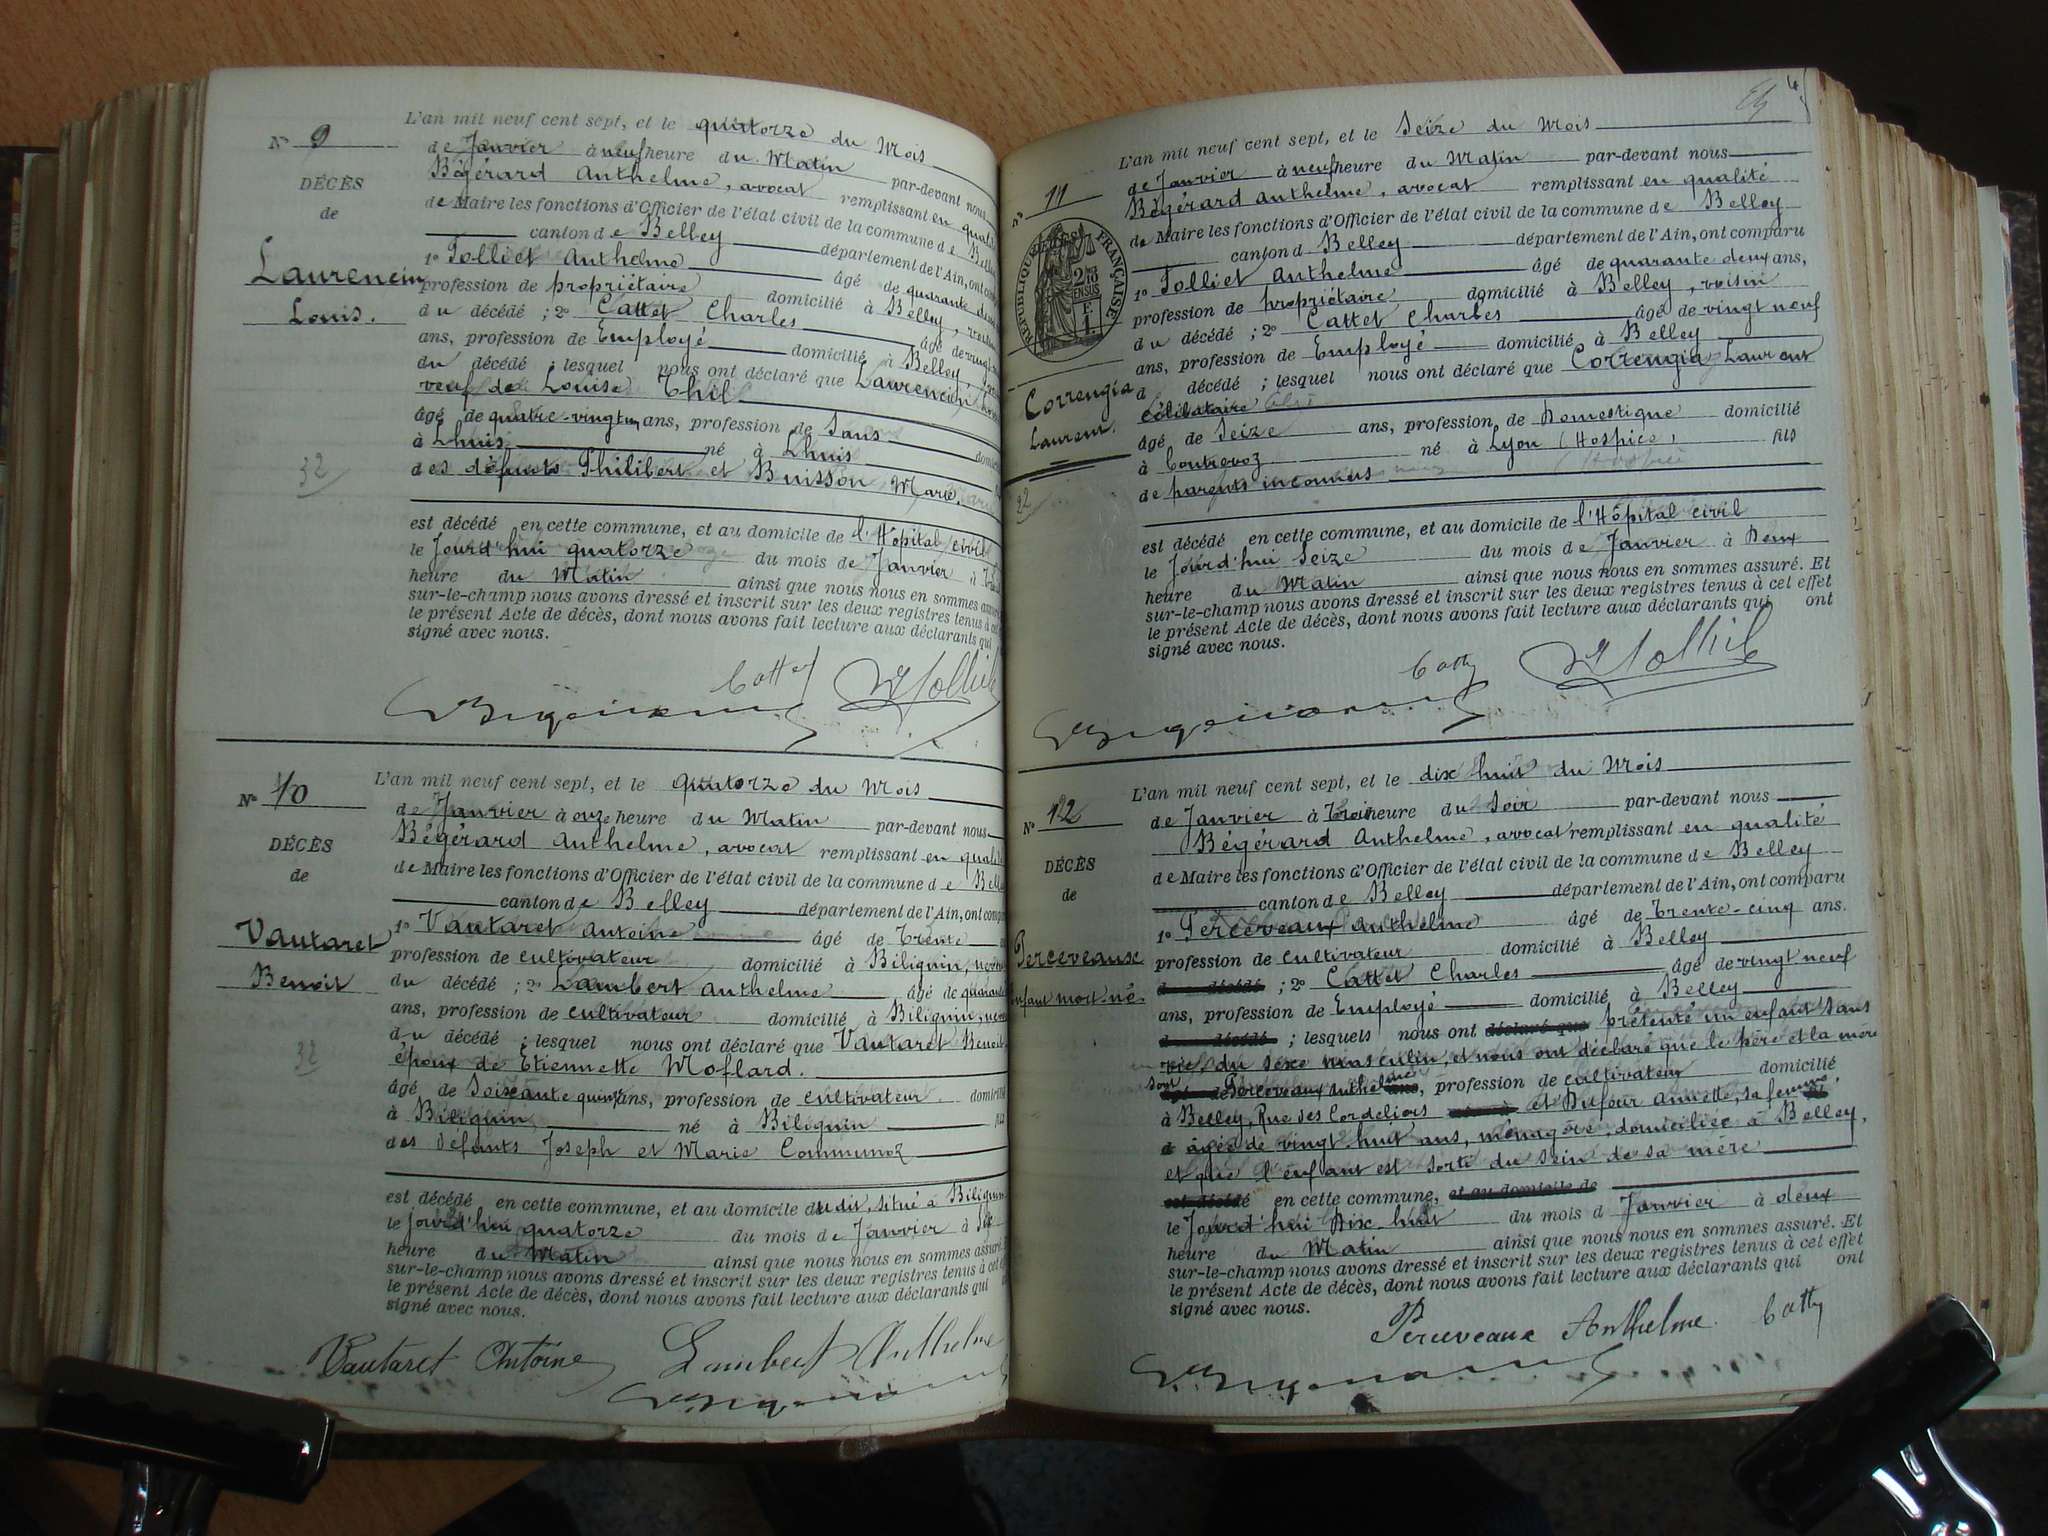 L'an mil neuf cent sept, et le quatorze du Mois
N° 9
de Janvier à neuf heure du Matin par-devant nous
Bégérard Anthelme, avocat remplissant en qualité
DÉCÈS
de Maire les fonctions d'Officier de l'état civil de la commune de Belley
de
canton de Belley département de l'Ain, ont comparu
Laurencin
1° Tolliet Anthelme âgé de quarante deux
profession de propriétaire domicilié à Belley, voisin
Louis.
du décédé ; 2° Cattet Charles âgé de vingt
ans, profession de Employé domicilié à Belley,
du décédé ; lesquel nous ont déclaré que Laurencin Louis
veuf de Louise Thil
âgé de quatre-vingt un ans, profession de Sans
à Lhuis né à Lhuis
32
des défunts Philibert et Buisson Marie
est décédé en cette commune, et au domicile de l'Hôpital civil
le Jourd'hui quatorze du mois de Janvier à
heure du Matin ainsi que nous nous en sommes assuré
sur-le-champ nous avons dressé et inscrit sur les deux registres tenus à cet
le présent Acte de décès, dont nous avons fait lecture aux déclarants qui
signé avec nous.
Cattet Tolliet
Bégérard
L'an mil neuf cent sept, et le quatorze du Mois
N° 10
de Janvier à onze heure du Matin par-devant nous
Bégérard Anthelme, avocat remplissant en qualité
DÉCÈS
de Maire les fonctions d'Officier de l'état civil de la commune de Belley
de
canton de Belley département de l'Ain, ont comparu
Vautaret
1° Vautaret Antoine âgé de Trente
profession de cultivateur domicilié à Biliguin, neveu
Benoit
du décédé ; 2° Lambert Anthelme âgé de quarante
ans, profession de cultivateur domicilié à Biliguin, neveu
du décédé ; lesquel nous ont déclaré que Vautaret Benoit
32
époux de Etiennette Moflard.
âgé de Soixante quinze ans, profession de cultivateur domicilié
à Biliguin né à Biliguin fils
des défunts Joseph et Marie Communoz
est décédé en cette commune, et au domicile du dit, situé à Biliguin
le Jourd'hui quatorze du mois de Janvier à Six
heure du Matin ainsi que nous nous en sommes assuré
sur-le-champ nous avons dressé et inscrit sur les deux registres tenus à cet
le présent Acte de décès, dont nous avons fait lecture aux déclarants qui
signé avec nous.
Vautaret Antoine Lambert Anthelme
Bégérard
L'an mil neuf cent sept, et le Seize du Mois
N° 11
de Janvier à neuf heure du Matin par-devant nous
Bégérard Anthelme, avocat remplissant en qualité
de Maire les fonctions d'Officier de l'état civil de la commune de Belley
RÉPUBLIQUE FRANÇAISE
canton d Belley département de l'Ain, ont comparu
2/10
EN SUS
1° Tolliet Anthelme âgé de quarante deux ans,
profession de propriétaire domicilié à Belley, voisin
du décédé ; 2° Cattet Charles âgé de vingt neuf
ans, profession de Employé domicilié à Belley
Correngia
d décédé ; lesquel nous ont déclaré que Correngia Laurent
Célibataire
Laurent.
âgé de Seize ans, profession de Domestique domicilié
à Contrevoz né à Lyon (Hospice) fils
de parents inconnus
32
est décédé en cette commune, et au domicile de l'Hôpital civil
le Jourd'hui Seize du mois de Janvier à Deux
heure du Matin ainsi que nous nous en sommes assuré. Et
sur-le-champ nous avons dressé et inscrit sur les deux registres tenus à cet effet
le présent Acte de décès, dont nous avons fait lecture aux déclarants qui ont
signé avec nous.
Cattet Tolliet
Bégérard
L'an mil neuf cent sept, et le dix huit du Mois
N° 12
de Janvier à Trois heure du Soir par-devant nous
Bégérard Anthelme, avocat remplissant en qualité
DÉCÈS
de Maire les fonctions d'Officier de l'état civil de la commune de Belley
de
canton de Belley département de l'Ain, ont comparu
1° Perceveaux Anthelme âgé de Trente-cinq ans.
Perceveaux
profession de cultivateur domicilié à Belley
d décédé ; 2° Cattet Charles âgé de vingt neuf
Enfant mort-né.
ans, profession de Employé domicilié à Belley
d décédé ; lesquels nous ont déclaré que présenté un enfant Sans
vie, du sexe masculin, et nous ont déclaré que le père et la mère
sont Perceveaux Anthelme, profession de cultivateur domicilié
à Belley, Rue des Cordeliers et Dufour Annette, sa femme
âgée de vingt-huit ans, ménagère, domiciliée à Belley,
et que l'enfant est Sorti du Sein de sa mère
est décédé en cette commune, et au domicile de
le Jourd'hui Dix huit du mois d Janvier à deux
heure du Matin ainsi que nous nous en sommes assuré. Et
sur-le-champ nous avons dressé et inscrit sur les deux registres tenus à cet effet
le présent Acte de décès, dont nous avons fait lecture aux déclarants qui ont
signé avec nous.
Perceveaux Anthelme Cattet
Bégérard